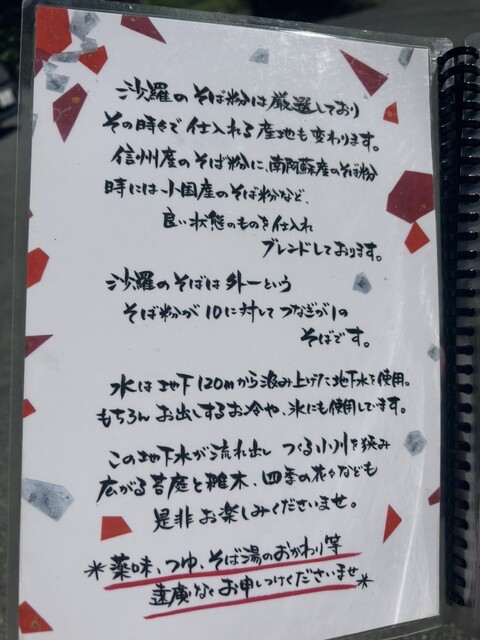 沙羅のそば粉は厳選しており
その時々で仕入れる産地も変わります。
信州産のそば粉に、南阿蘇産のそば粉
時には小国産のそば粉など、
良い状態のものを仕入れ
ブレンドしております。
沙羅のそばは外一という
そば粉が10に対してつなぎが1の
そばです。
水は地下120mから汲み上げた地下水を使用。
もちろんお出しするお冷や、氷にも使用しています。
この地下水が流れ出しつくる小川を挟み
広がる苔庭と雑木、四季の花々なども
是非お楽しみくださいませ。
*薬味、つゆ、そば湯のおかわり等
遠慮なくお申しつけくださいませ*